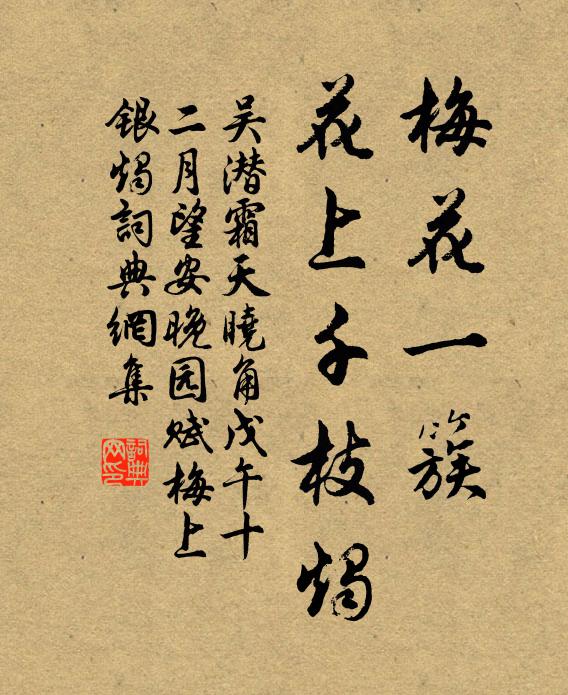 梅花一簇
花上千枝烛
吴潜霜天曉角戊午十
二月望安晚园赋梅上
银烛詞典網集
詞典网印